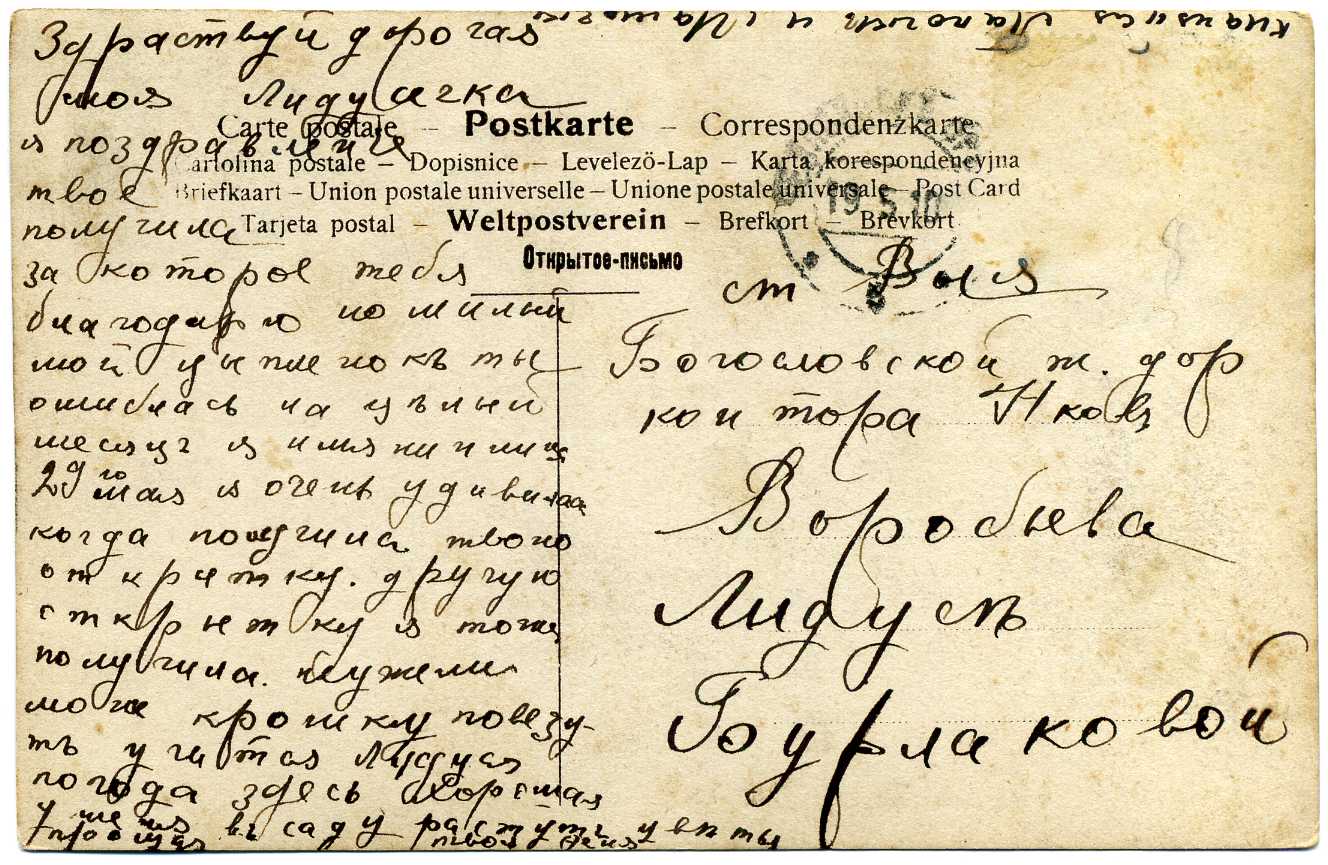 Здраствуй дорогая
моя Лидусачка
я поздравление
твое
получила
за которое тебя
благодарю но милый
мой цыпленокъ ты
ошиблась на цѣлый
месяцъ я имянинница
29го мая я очень удивилась
когда получила твою
открытку. другую
открытку я тоже
получила. Неужели
мою крошку повезу-
тъ учится Лидуся
погода здесь хорошая
у меня въ саду растутъ цветы
прощай твоя
Папочку и Мамочку
Carte postale – Postkarte – Correspondenzkarte
Cartolina postale – Dopisnice – Levelező-Lap – Karta korespondencyjna
Briefkaart – Union postale universelle – Unione postale universale – Post Card
Tarjeta postal – Weltpostverein – Brefkort – Brevkort
Открытое-письмо
19.5.10
8
ст Выя
Богословской ж. дор
контора Нков
Воробьева
Лидусѣ
Бурлаковой